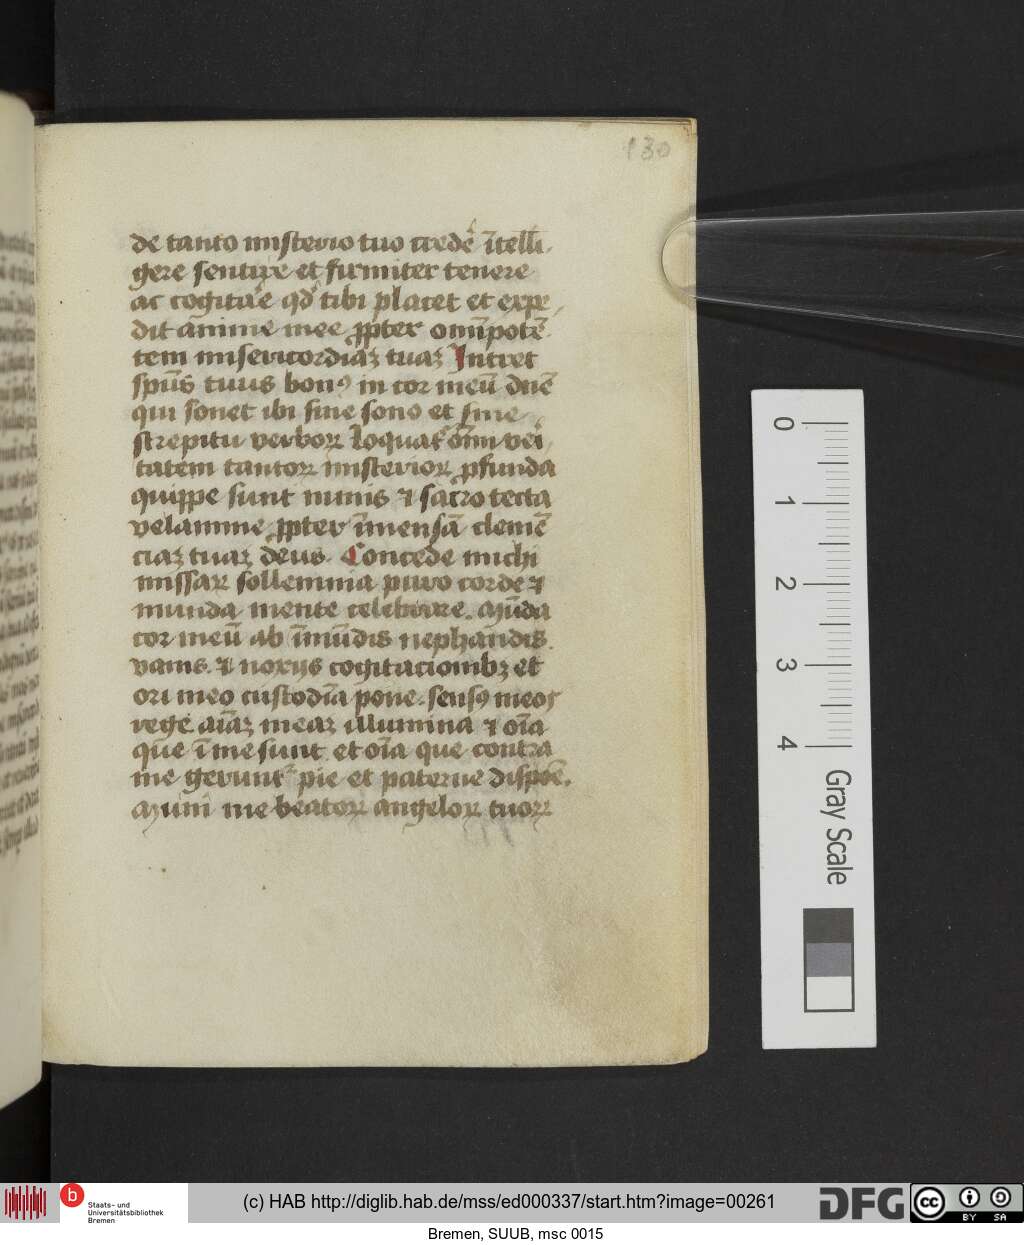 130
de tanto misterio tuo credē ītelli-
gere sentire et firmiter tenere
ac cogitare qd tibi placet et expe-
dit anime mee ꝓpter omīpotē-
tem misericordiaꝫ tuaꝫ Intret
spūs tuus bonꝰ in cor meū dnē
qui sonet ibi sine sono et sine
strepitu verboꝝ loquat omī vei
tatem tantoꝝ misterioꝝ ꝓfunda
quippe sunt nimis ⁊ sacro tecta
velamine ꝓpter īmensā clemē
ciaꝫ tuaꝫ deus. Concede michi
missaꝝ sollemnia puro corde ⁊
munda mente celebrare. Mūda
cor meū ab īmūdis nephandis.
vanis. ⁊ noxijs cogitacionibꝫ et
ori meo custodiā pone. sensꝰ meos
rege aīaꝫ meaꝫ illumina ⁊ oīa
que ī me sunt et oīa que contra
me gerunt pie et paterne dispōe.
Muni me beatoꝝ angeloꝝ tuoꝝ
0
1
2
3
4
Gray Scale
b
Staats- und
Universitätsbibliothek
Bremen
(c) HAB http://diglib.hab.de/mss/ed000337/start.htm?image=00261
DFG
cc
BY SA
Bremen, SUUB, msc 0015